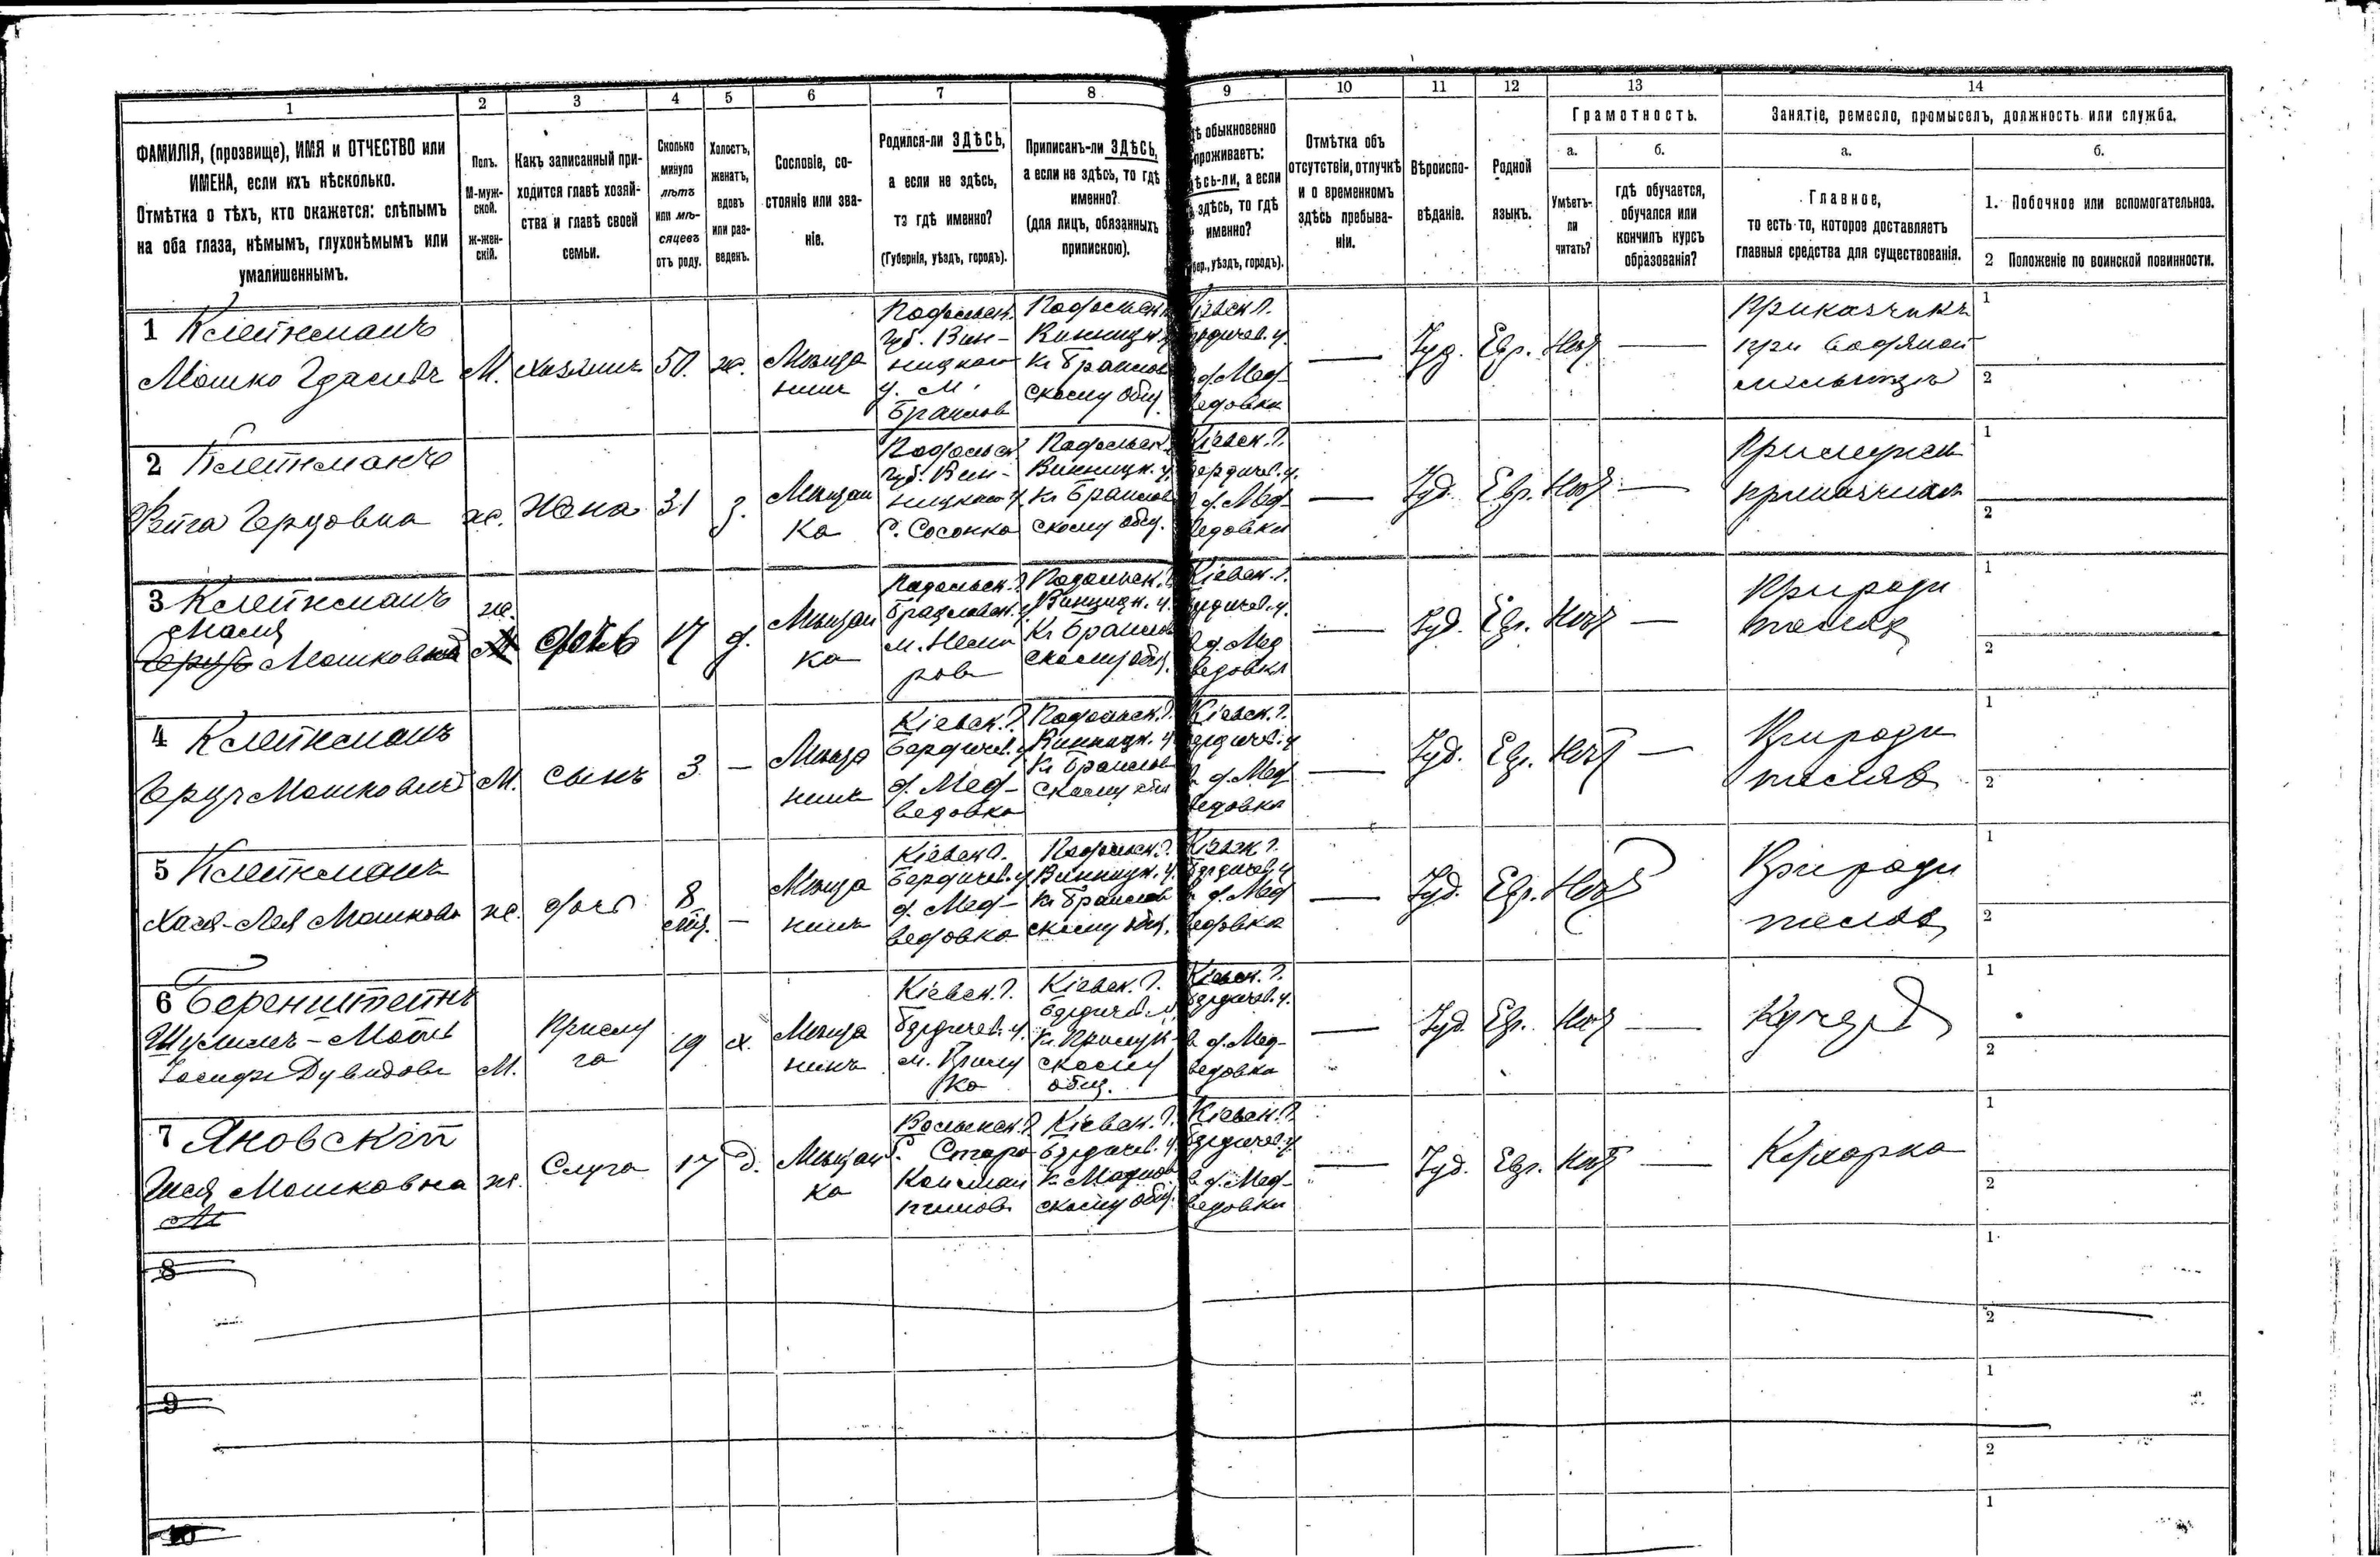 1 2 3 4 5 6 7 8 9 10 11 12 13 14
ФАМИЛІЯ, (прозвище), ИМЯ и ОТЧЕСТВО или
ИМЕНА, если ихъ нѣсколько.
Отмѣтка о тѣхъ, кто окажется: слѣпымъ
на оба глаза, нѣмымъ, глухонѣмымъ или
умалишеннымъ.
Полъ.
М-муж-
ской.
ж-жен-
скій.
Какъ записанный при-
ходится главѣ хозяй-
ства и главѣ своей
семьи.
Сколько
минуло
лѣтъ
или мѣ-
сяцевъ
отъ роду.
Холостъ,
женатъ,
вдовъ
или раз-
веденъ.
Сословіе, со-
стояніе или зва-
ніе.
Родился-ли ЗДѢСЬ,
а если не здѣсь,
то гдѣ именно?
(Губернія, уѣздъ, городъ).
Приписанъ-ли ЗДѢСЬ,
а если не здѣсь, то гдѣ
именно?
(для лицъ, обязанныхъ
припискою).
обыкновенно
проживаетъ:
а если
здѣсь, то гдѣ
именно?
уѣздъ, городъ).
Отмѣтка объ
отсутствіи, отлучкѣ
и о временномъ
здѣсь пребыва-
ніи.
Вѣроиспо-
вѣданіе.
Родной
языкъ.
Грамотность.
а.
Умѣетъ-
ли
читать?
б.
гдѣ обучается,
обучался или
кончилъ курсъ
образованія?
Занятіе, ремесло, промыселъ, должность или служба.
а.
Главное,
то есть то, которое доставляетъ
главныя средства для существованія.
б.
1. Побочное или вспомогательное.
2 Положеніе по воинской повинности.
1 Клейнманъ
Мошко
М.
хозяинъ
50.
ж.
Мѣща
нинъ
Подольск.
Губ. Вин-
ницкаго
у. м.
Браилов
Подольск.
Винницк. у.
Къ Браилов
скому общ.
Кіевск. Г.
Бердичев. у.
д. Мед-
ведовка
—
Іуд.
Евр.
Нѣт
—
Приказчикъ
при водяной
мельницѣ
1
2
2 Клейнманъ
Герцовна
ж.
жена
31
з.
Мѣщан
ка
Подольск
Губ. Вин-
ницкаго у.
С. Сосонка
Подольск.
Винницк. у.
Къ Браилов
скому общ.
Кіевск. Г.
Бердичев. у.
д. Мед-
ведовки
—
Іуд.
Евр.
Нѣт
—
При мужѣ
1
2
3 Клейнманъ
Мошков
ж.
дочь
17
д.
Мѣщан
ка
Подольск. Г.
Брацлавск. у.
м. Неми
ров
Подольск. Г.
Винницк. у.
Къ Браилов
скому общ.
Кіевск. Г.
Бердичев. у.
д. Мед
ведовка
—
Іуд.
Евр.
Нѣт
—
При роди
теляхъ
1
2
4 Клейнманъ
Герцъ Мошкович
М.
сынъ
3
—
Мѣща
нинъ
Кіевск. Г.
Бердичев. у.
д. Мед-
ведовка
Подольск. Г.
Винницк. у.
Къ Браилов
скому общ
Кіевск. Г.
Бердичев. у
д. Мед
ведовка
—
Іуд.
Евр.
Нѣт
—
При роди
теляхъ
1
2
5 Клейнманъ
Хася-Лея Мошкова
ж.
дочь
8
мѣс.
—
Мѣща
нинъ
Кіевск. Г.
Бердичев. у.
д. Мед-
ведовка
Подольск. Г.
Винницк. у.
Къ Браилов
скому общ.
Кіевск. Г.
Бердичев. у
д. Мед
ведовка
—
Іуд.
Евр.
Нѣт
При роди
теляхъ
1
2
6 Беренштейнъ
Іосифъ Дувидов
М.
Прислу
га
19
х.
Мѣща
нинъ
Кіевск. Г.
Бердичев. у.
м. Прилу
ка
Кіевск. Г.
Бердичев. у.
Къ Прилук-
скому
общ.
Кіевск. Г.
Бердичев. у.
д. Мед-
ведовка
—
Іуд.
Евр.
Нѣт
—
Кучеръ
1
2
7 Яновскій
Мошковна
ж.
Слуга
17
д.
Мѣщан
ка
Волынск. Г.
Г. Старо
Константинов
Кіевск. Г.
Бердичев. у.
скому общ.
Кіевск. Г.
Бердичев. у
д. Мед-
ведовки
—
Іуд.
Евр.
Нѣт
—
Кухарка
1
2
8
1
2
9
1
2
10
1